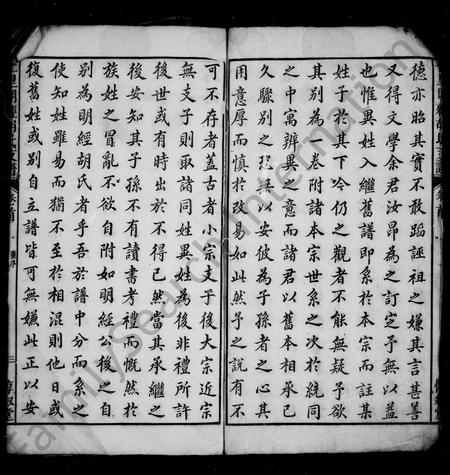 德亦昭其實不敢蹈誣祖之嫌其言甚善
又得文學余君汝昂為之訂定予無以益
也惟異姓入繼舊譜即系於本宗而註某
姓子於其下今仍之觀者不能無疑予欲
其別為一卷附諸本宗世系之次於統同
之中寓辨異之意而諸君以舊本相承已
久驟別之恐無以安彼為子孫者之心其
用意厚而慎於改易如此然予之說有不
可不存者蓋古者小宗支子後大宗近宗
無支子則取諸同姓異姓為後非禮所許
後世或有時出於不得已然當其承繼之
後安知其子孫不有讀書考禮而慨然於
族姓之冒亂不欲自附如明經公後之自
別為明經胡氏者乎吾於譜中分而系之
使知姓雖易而猶不至於相混則他日或
復舊姓或別自立譜皆可無嫌此正以安
三
FamilySearch International